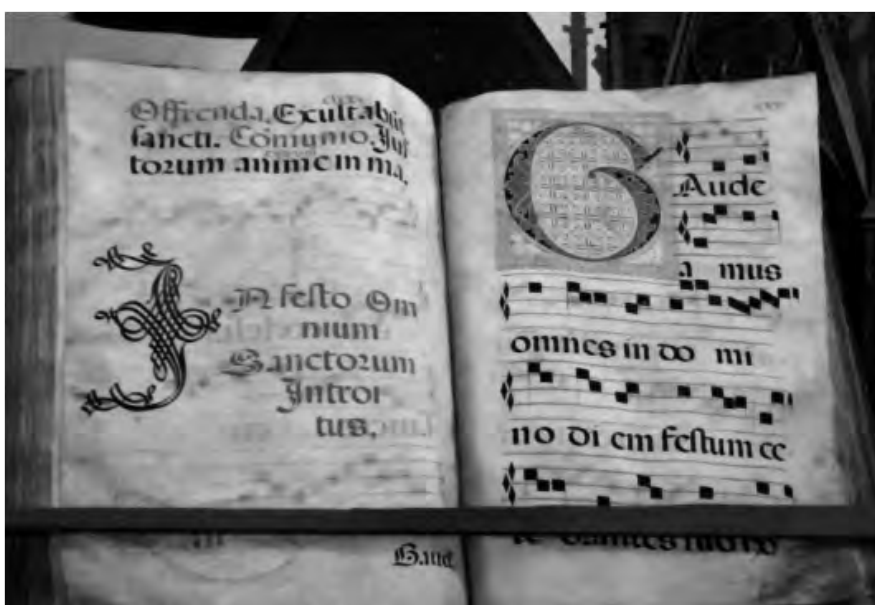 Offrenda. Exultabūt
sancti. Comunio. Jus
torum anime in ma.
In festo Om
nium
Sanctorum
Introi
tus.
Sanct
GAude
a mus
omnes in do mi
no di em festum ce
le brantes